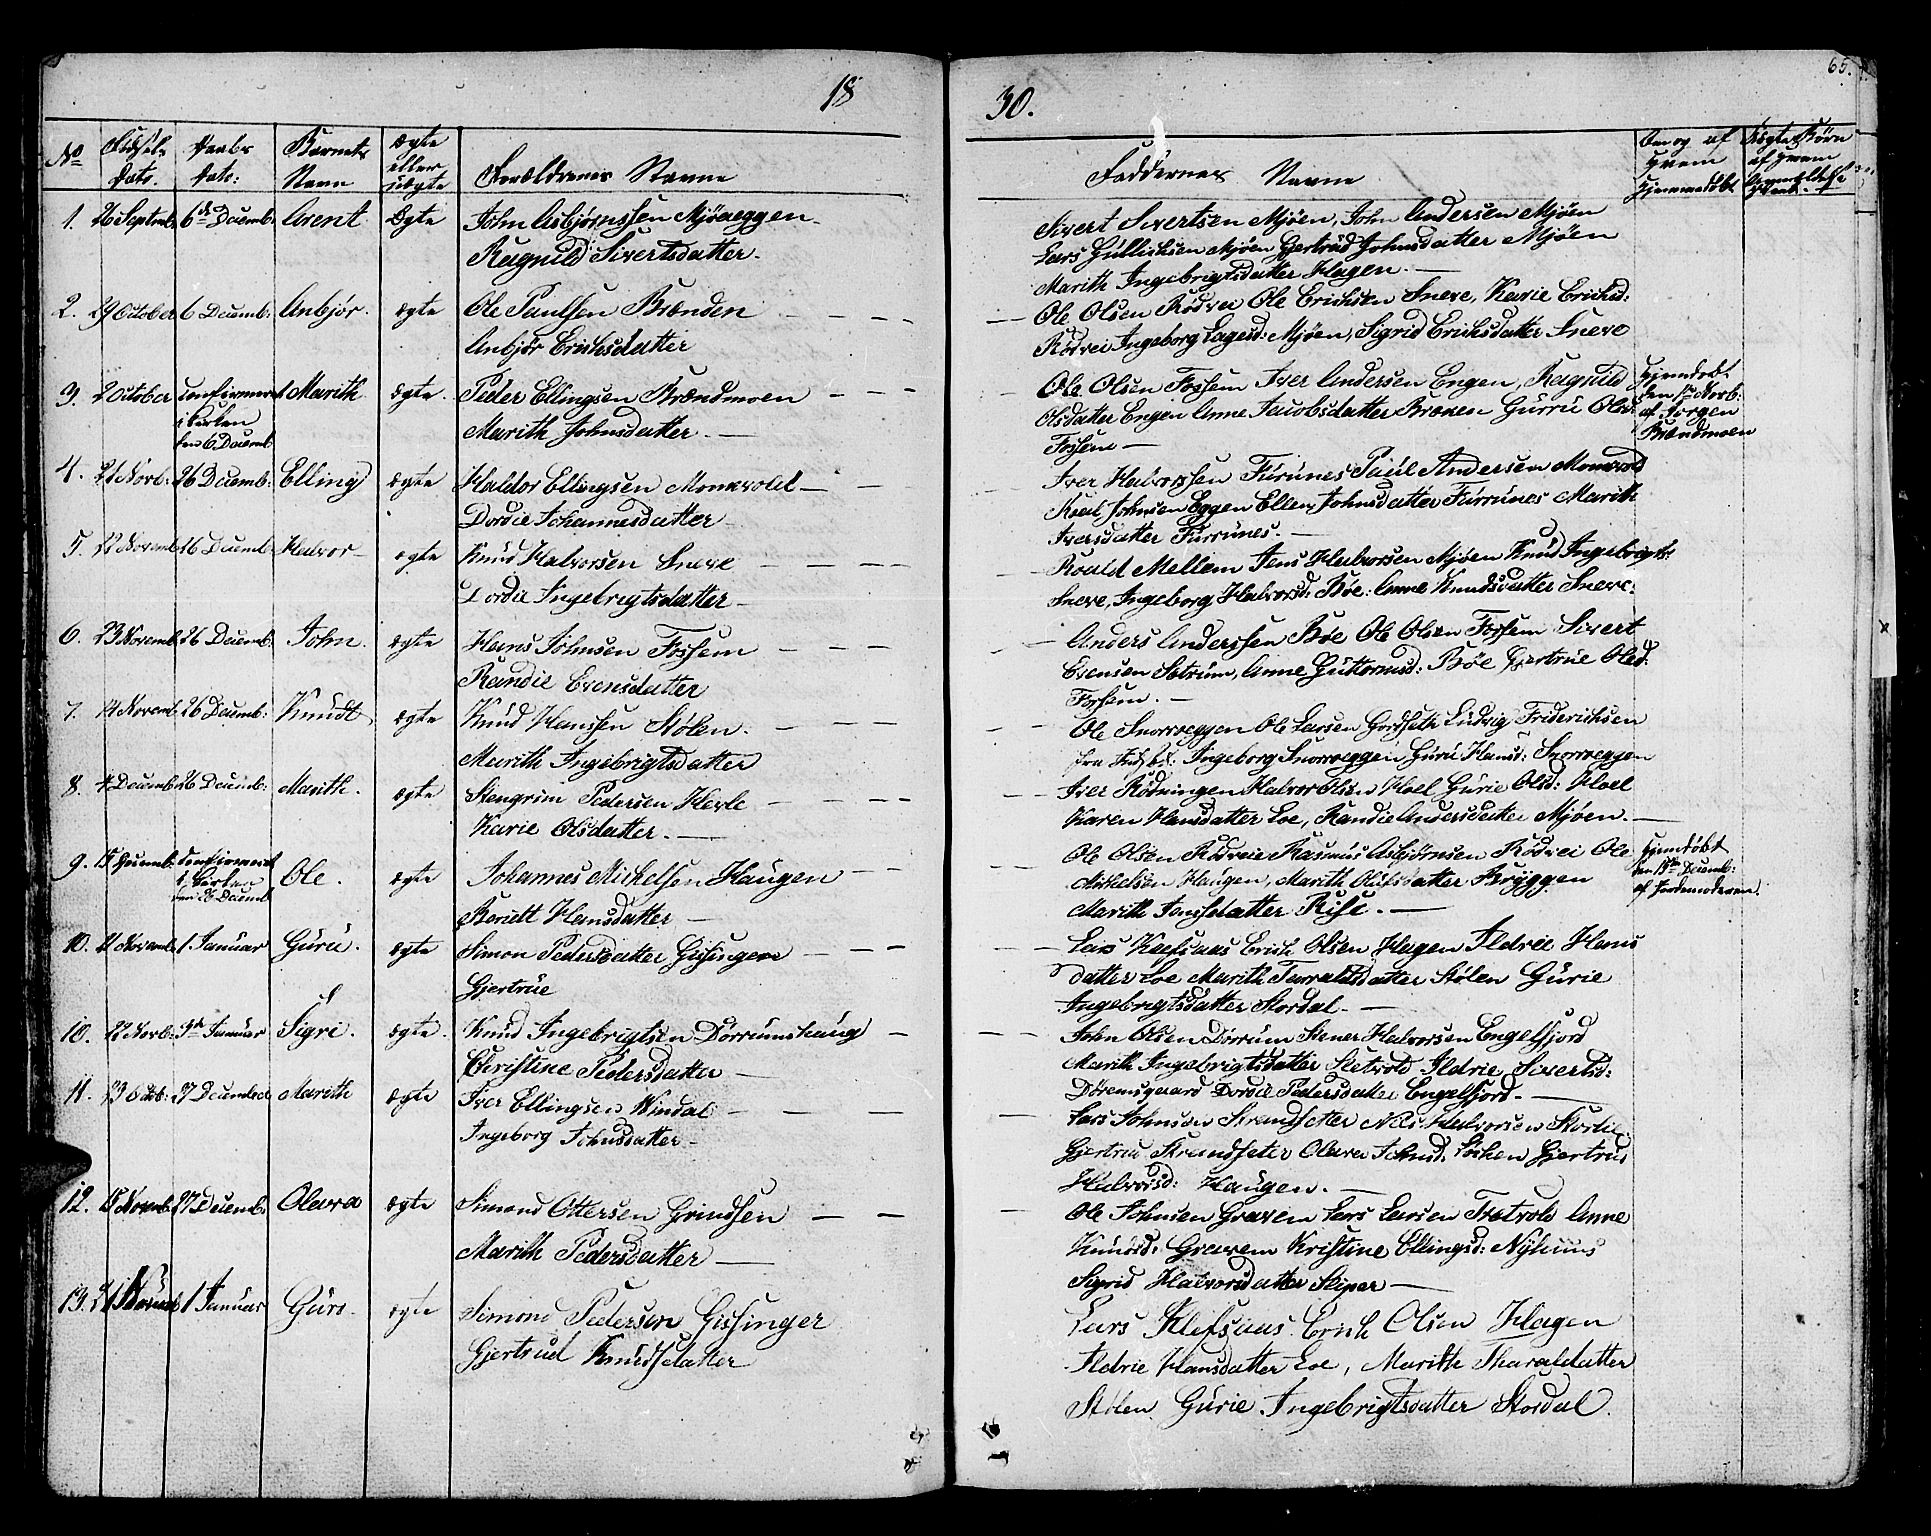 18
30.
65.
No
Fødsels
Dato.
Daabs
Dato:
Barnets
Navn
ægte
eller
uægte
Forældrenes Navne
Faddernes Navne
Om og af
hvem
hjemmedøbt
Uægte Børn
af hvem
1. 26 Septemb: 6te Decemb: Arent. Ægte John Asbjørnssen Mjøaeggen.
Ragnild Sivertsdatter.
Sivert Sivertsen Mjøen, John Andersen Mjøen
Lars Gullichsen Mjøen Gjertrud Johnsdatter Mjøen
Marith Ingebrigtsdatter Hagen.
2. 29 October 6 Decemb: Anbjør. ægte Ole Paulsen Brænden
Anbjør Erichsdatter
Ole Olsen Rødvei Ole Erichsen Sneve, Karie Erichsd:
Rødvei Ingeborg Lagesd: Mjøen, Sigrid Erichsdatter Sneve
3. 2 October confirmeret
i Kirken
den 6 Decemb
Marith ægte. Peder Ellingsen Brændmoen
Marith Johnsdatter.
Ole Olsen Fossem Iver Andersen Engen, Ragnild
Olsdatter Engen Anne Jacobsdatter Brænen Gurru Olsd:
Fossem
hjemdøbt
den 1ste Novb:
af Jørgen
Brændmoen
4. 21 Novb: 26 Decemb: Elling ægte Haldor Ellingsen Monsvold
Dordie Johannesdatter
Iver Halvorssen Furunes Paul Andersen Monsvold
Johnsen Eggen Ellen Johnsdatter Furrunes Marith
Iversdatter Furrunes.
5. 22 Novemb 26 Decemb: Halvor ægte Knud Halvorsen Sneve
Dordie Ingebrigtsdatter
Roald Mellem Jens Halvorsen Mjøen Knud Ingebrigts:
Sneve, Ingeborg Halvorsd: Bøe: Anne Knudsdatter Sneve:
6. 23 Novemb 26 Decemb: John. ægte Hans Johnsen Fossem
Randie Evensdatter
Anders Anderssen Bøe Ole Olsen Fossem Sivert
Evensen Sætrum, Anne Guttormsd: Bøe Gjertrue Olsd:
Fossem.
7. 14 Novemb 26 Decemb: Knudt ægte Knud Hanssen Stølen.
Marith Ingebrigtsdatter
Ole Snorroeggen Ole Larsen Gordseth Ludvig Friderichsen
fra Ingeborg Snorroeggen Guru Hansd: Snorroeggen
8. 4 Decemb 26 Decemb: Marith. ægte Stengrim Pedersen Hevle
Karie Olsdatter.
Iver Rødningen Halvor Olsen Hoel Gurie Olsd: Hoel
Karen Hansdatter Loe, Randie Andersdatter Mjøen.
9. 15 Decemb. confirmeret
i Kirken
den 26 Decemb
Ole. ægte Johannes Michelsen Haugen
Beridt Hansdatter
Ole Olsen Rødveie Rasmus Asbjørnsen Rødvei Ole
Michelsen Haugen, Marith Olufsdatter Bryggen
Marith Jonsdatter Rise.
hjemdøbt
den 15de Decemb:
af Jordemoderen.
10. 21 Novemb: 1. Januar Guru. ægte Simon Pedersdatter Gissingen
Gjertrue
Lars Klefsaas Erich Olsen Hagen Ildrie Hans
datter Loe Marith Taraldsdatter Stølen Gurie
Ingebrigtsdatter Stordal.
10. 22 Novb: 9de Januar Sigri. ægte. Knud Ingebrigtsen Dørrumshaug
Christine Pedersdatter
John Olsen Dørrum Stener Halvorsen Engelsfjord
Marith Ingebrigtsdatter Sletvold Ildrie Sivertsd:
Døremsgaard Dordie Pedersdatter Engelsfjord.
11. 23 Octb: 27 December Marith ægte Iver Ellingsen Vindal
Ingeborg Johnsdatter
Lars Johnsen Strandsetter Nils Halvorsen Storlie
Gjertrue Strandseter Olava Johnsd: Løchen Gjertrus
Halvorsd: Haugen.
12. 15 Novemb 27 Decemb: Olava ægte Simond Ottersen Grindsen
Marith Pedersdatter
Ole Johnsen Gravem Lars Larsen Tretvold Anne
Knudsd: Gravem Kristine Ellingsd: Nyhuus
Sigrid Halvorsdatter Skiper
13. 21 1 Januar Guro. ægte Simond Pedersen Gissinger
Gjertrud Knudsdatter
Lars Klefsaas. Erich Olsen Hagen
Ildrie Hansdatter Loe, Marith Tharaldatter
Stølen Gurie. Ingebrigtsdatter Stordal.